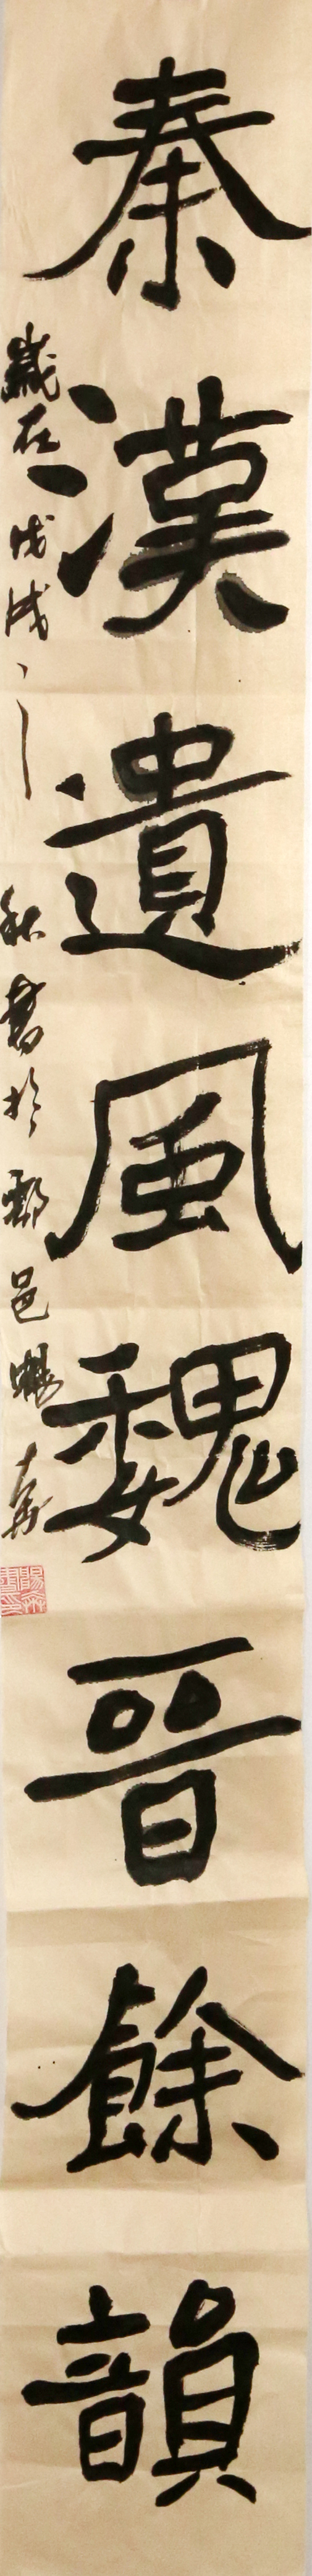 秦漢遺風魏晉餘韻
歲在戊戌之秋書於鄱邑